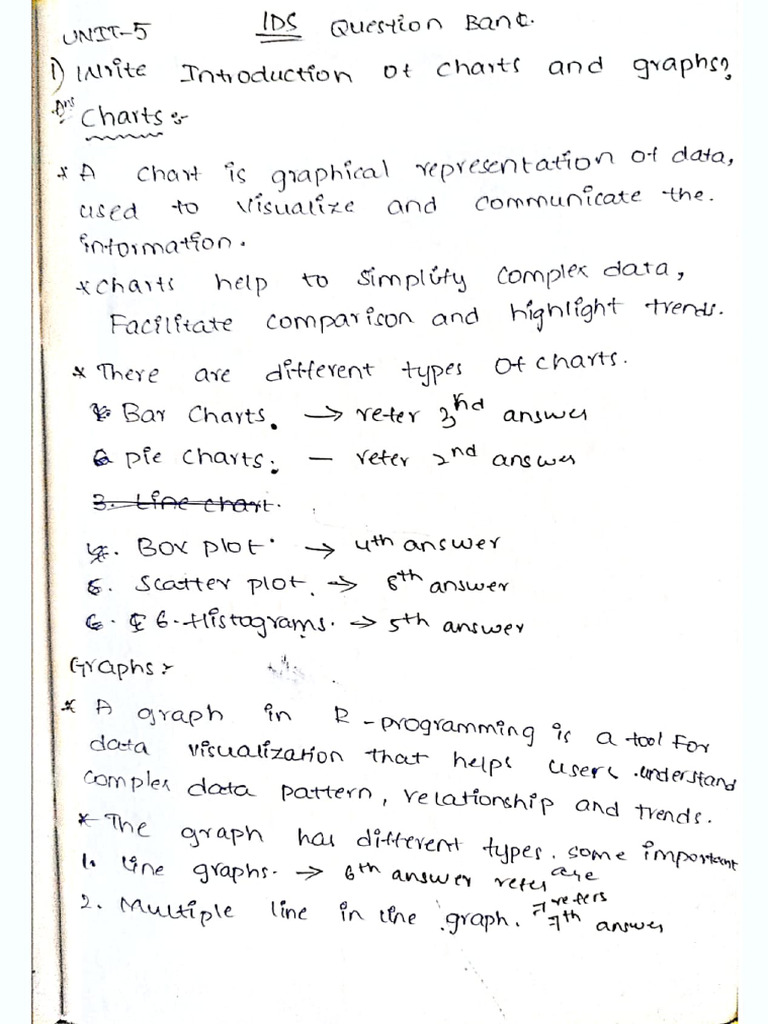 UNIT-5 IDS Question Bank.
1) Write Introduction of charts and graphs?
Ans Charts :-
* A chart is graphical representation of data,
used to visualize and communicate the.
information.
* Charts help to simplify complex data,
Facilitate comparison and highlight trends.
* There are different types of charts.
Bar Charts. → refer 3rd answer
pie charts. — refer 2nd answer
3. Line chart.
4. Box plot. → 4th answer
5. Scatter plot. → 8th answer
6. Histograms. → 5th answer
Graphs :-
* A graph in R-programming is a tool for
data visualization that helps users understand
complex data pattern, relationship and trends.
* The graph has different types. some important
are
1. line graphs. → 6th answer refer
2. Multiple line in line graph. → refers
7th answer